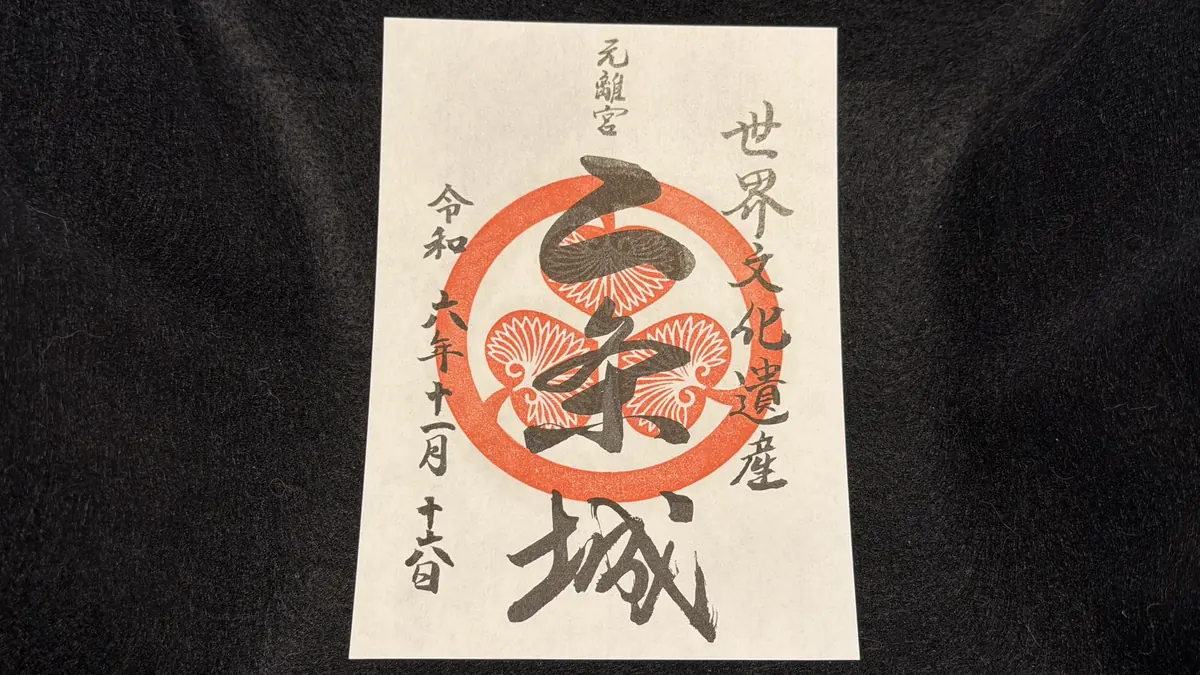 世界文化遺産
元離宮
二条城
令和六年十一月十六日